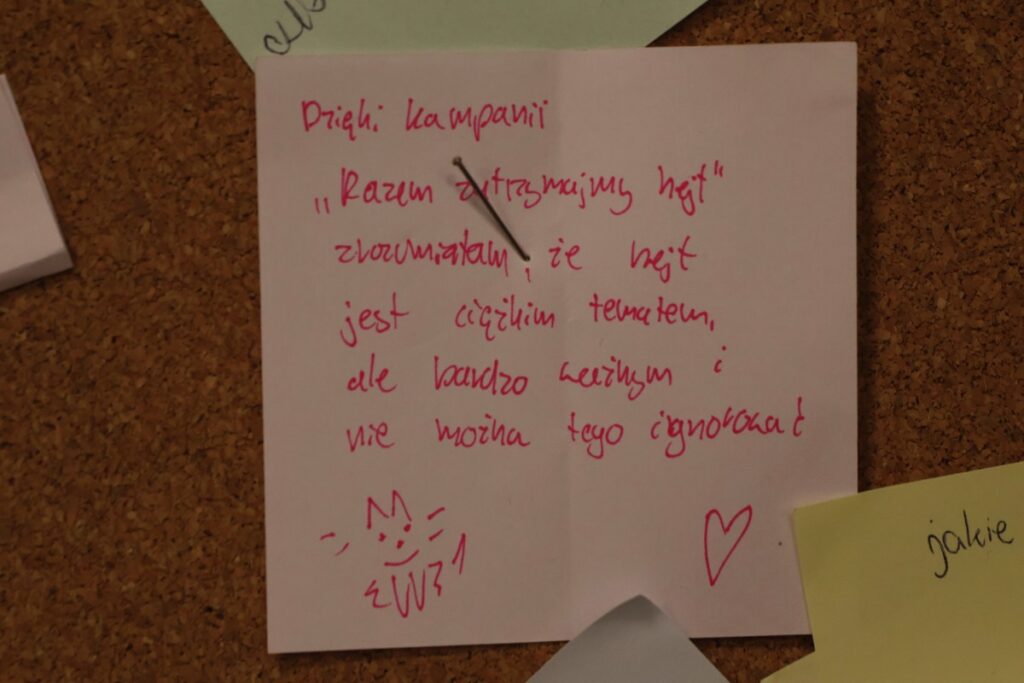 Dzięki kampanii
„Razem zatrzymajmy hejt"
zrozumiałam, że hejt
jest ciężkim tematem,
ale bardzo ważnym i
nie można tego ignorować
jakie